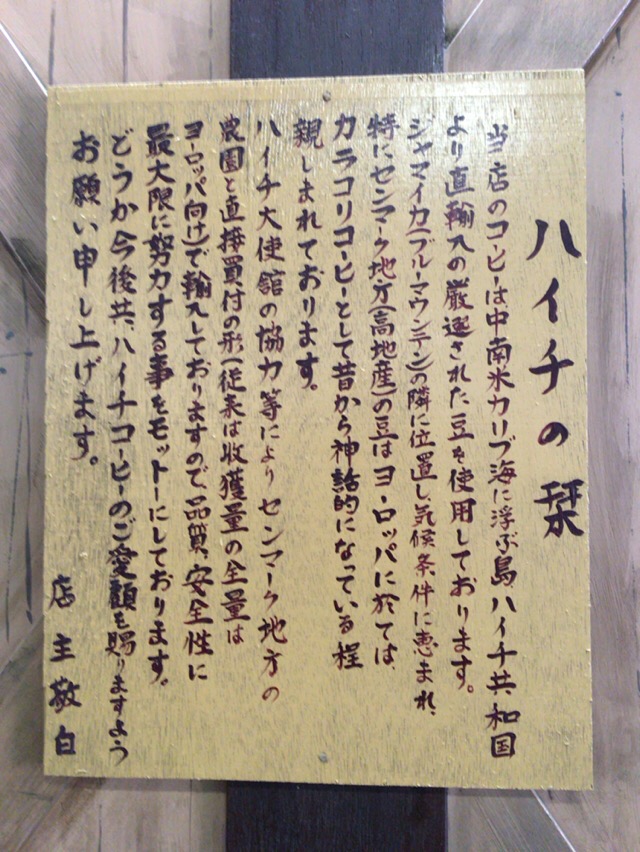 ハイチの栞
当店のコーヒーは中南米カリブ海に浮ぶ島ハイチ共和国
より直輸入の厳選された豆を使用しております。
ジャマイカ(ブルーマウンテン)の隣に位置し、気候条件に恵まれ、
特にセンマーク地方(高地産)の豆はヨーロッパに於ては、
カラコリコーヒーとして昔から神話的になっている程
親しまれております。
ハイチ大使館の協力等によりセンマーク地方の
農園と直接買付の形(従来は収獲量の全量は
ヨーロッパ向け)で輸入しておりますので、品質、安全性に
最大限に努力する事をモットーにしております。
どうか今後共、ハイチコーヒーのご愛顧を賜りますよう
お願い申し上げます。
店主敬白